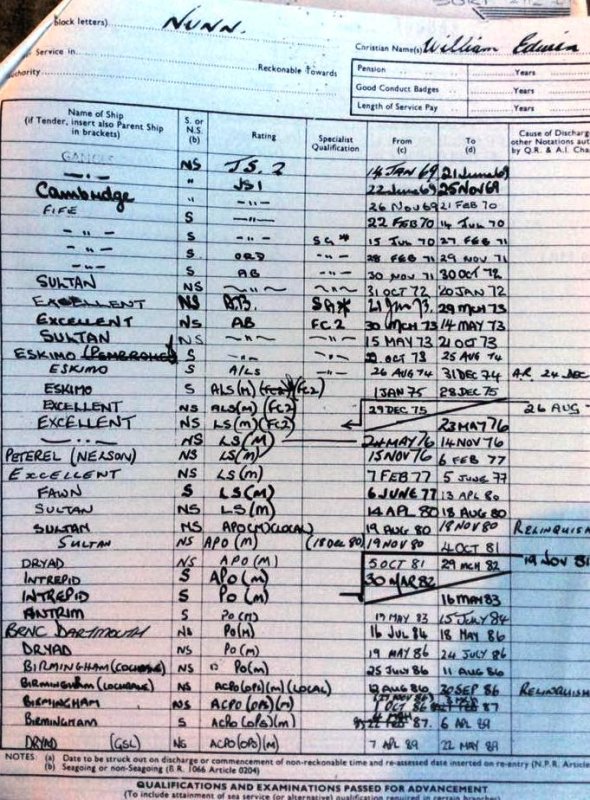 Block letters) NUNN.
Christian Name(s) William Edwin
Service in Reckonable Towards
Authority
Pension Years
Good Conduct Badges Years
Length of Service Pay Years
Name of Ship (if Tender, insert also Parent Ship in brackets) S. or N.S. (b) Rating Specialist Qualification From (c) To (d) Cause of Discharge other Notations aut by Q.R. & A.I. Cha
GANGES NS J.S. 2 14 JAN 69 21 June 69
-"- " JS1 22 June 69 25 NOV 69
Cambridge " -"- 26 NOV 69 21 FEB 70
FIFE S -"- 22 FEB 70 14 JUL 70
-"- S -"- SG* 15 JUL 70 27 FEB 71
-"- S ORD -"- 28 FEB 71 29 NOV 71
-"- S AB -"- 30 NOV 71 30 OCT 72
SULTAN NS -"- -"- 31 OCT 72 20 JAN 72
EXCELLENT NS A.B. SG* 21 Jan 73. 29 MCH 73
EXCELLENT NS AB FC2 30 MCH 73 14 MAY 73
SULTAN NS -"- -"- 15 MAY 73 21 OCT 73
ESKIMO (PEMBROKE) S -"- -"- 22 OCT 73 25 AUG 74
ESKIMO S A/LS -"- 26 AUG 74 31 DEC 74 A.R. 24 DEC
ESKIMO S ALS(M) (FC2) 1 JAN 75 28 DEC 75
EXCELLENT NS ALS(M) (FC2) 29 DEC 75 26 AUG
EXCELLENT NS LS(M) (FC2) 23 MAY 76
-"- NS LS(M) 24 MAY 76 14 NOV 76
PETEREL (NELSON) NS LS(M) 15 NOV 76 6 FEB 77
EXCELLENT NS LS(M) 7 FEB 77 5 JUNE 77
FAWN S LS(M) 6 JUNE 77 13 APL 80
SULTAN NS LS(M) 14 APL 80 18 AUG 80
SULTAN NS APO(M)(LOCAL) 19 AUG 80 18 NOV 80 RELINQUISH
SULTAN NS APO(M) (18 DEC 80) 19 NOV 80 4 OCT 81
DRYAD NS APO(M) 5 OCT 81 29 MCH 82 19 NOV 81
INTREPID S APO(M) 30 MAR 82
INTREPID S PO(M) 16 MAY 83
ANTRIM S PO(M) 17 MAY 83 15 JULY 84
BRNC DARTMOUTH NS PO(M) 16 JUL 84 18 MAY 86
DRYAD NS PO(M) 19 MAY 86 24 JULY 86
BIRMINGHAM (COCHRANE) NS PO(M) 25 JULY 86 11 AUG 86
BIRMINGHAM (COCHRANE) NS ACPO(OPS)(M)(LOCAL) 12 AUG 86 30 SEP 86 RELINQUISH
BIRMINGHAM NS ACPO(OPS)(M) (27 NOV 86) 1 OCT 86 FEB 87
BIRMINGHAM S ACPO(OPS)(M) FEB 87. 6 APL 89
DRYAD (GSL) NS ACPO(OPS)(M) 7 APL 89 22 MAY 89
NOTES: (a) Date to be struck out on discharge or commencement of non-reckonable time and re-assessed date inserted on re-entry (N.P.R. Article
(b) Seagoing or non-Seagoing (B.R. 1066 Article 0204)
QUALIFICATIONS AND EXAMINATIONS PASSED FOR ADVANCEMENT
(To include attainment of sea service (or alternative) qualification required in certain branches)